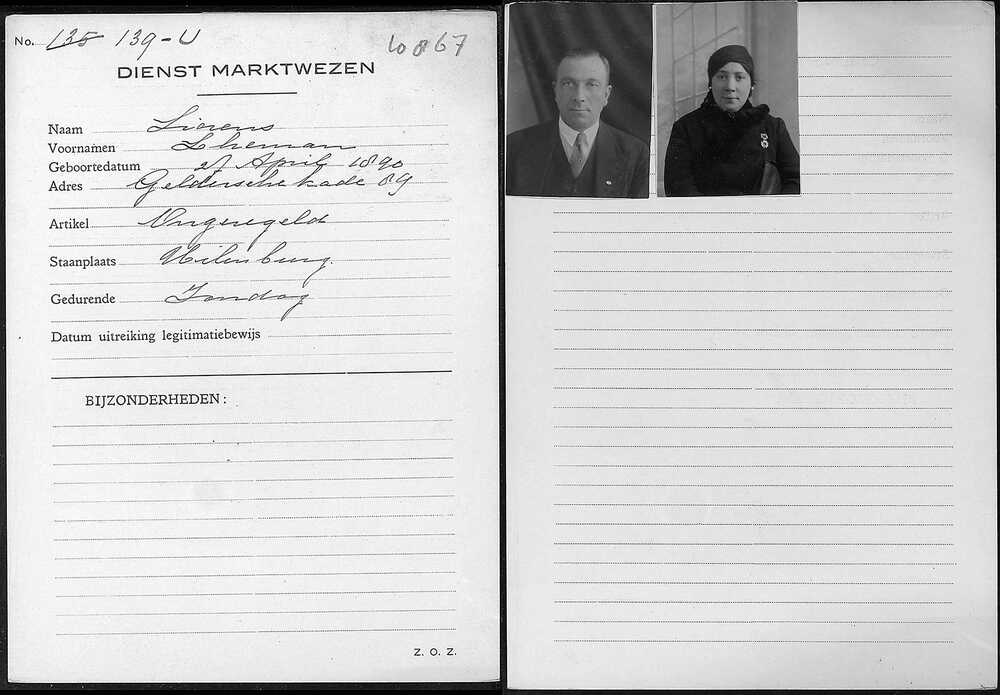 No. 135 139-U 10867
DIENST MARKTWEZEN
Naam Lierens
Voornamen
Geboortedatum 21 April 1890
Adres Gelderschekade 89
Artikel Ongeregeld
Staanplaats Uilenburg.
Gedurende Zondag
Datum uitreiking legitimatiebewijs
BIJZONDERHEDEN:
Z. O. Z.